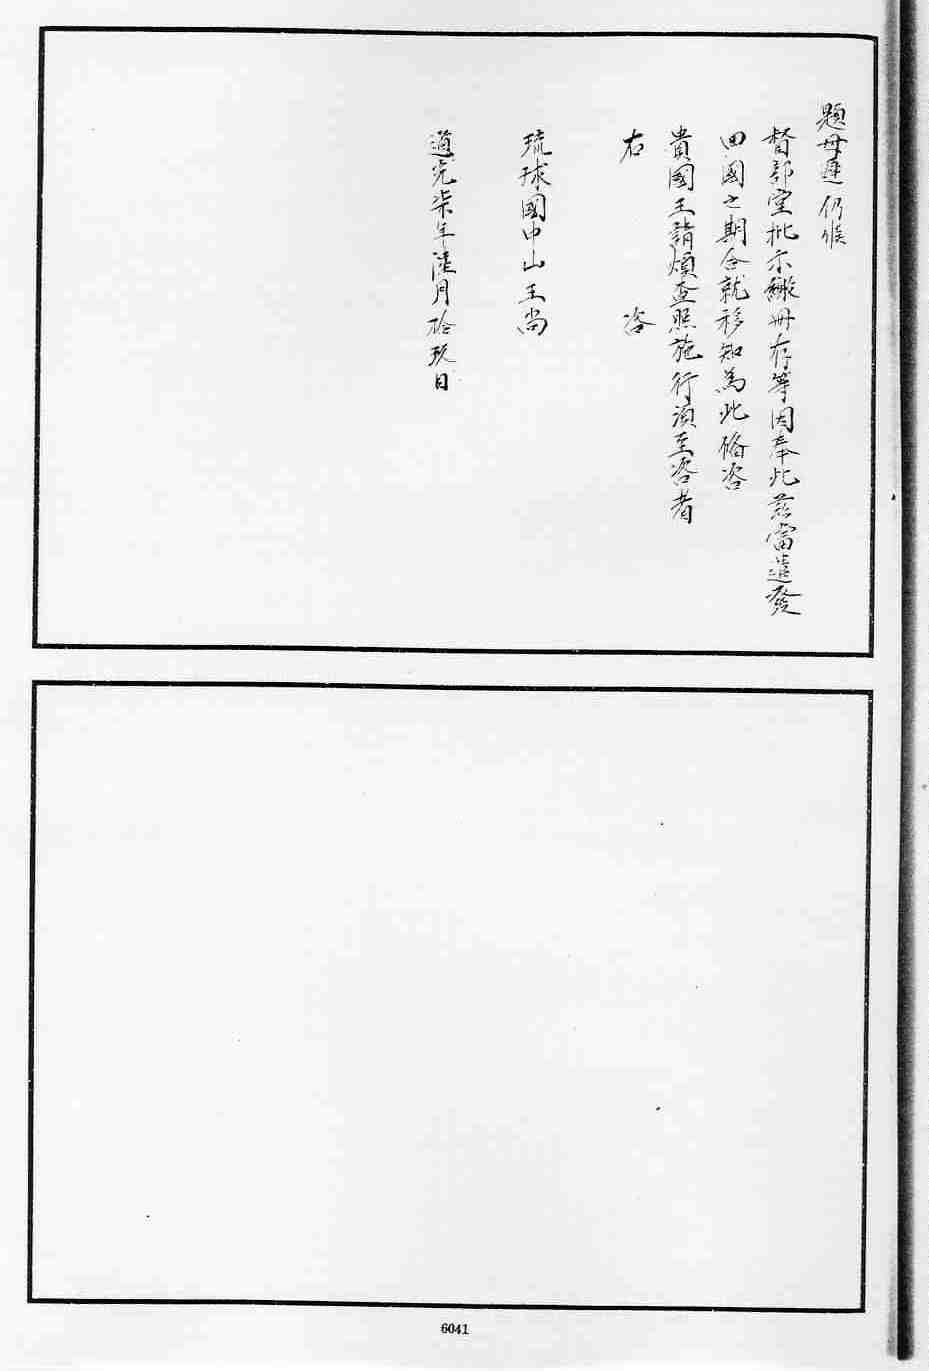 題毋遲仍候
督部堂批示繳冊存等因奉此茲當遣發
回國之期合就移知為此備咨
貴國王請煩查照施行須至咨者
右咨
琉球國中山王尚
道光柒年陸月拾玖日
6041